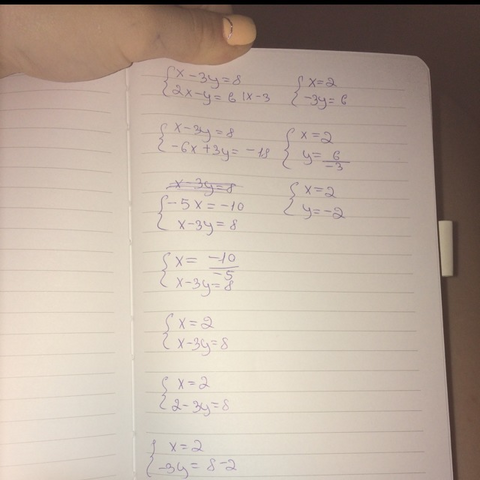 x-3y=8
2x-y=6 |x-3
x-3y=8
-6x+3y=-18
x-3y=8
-5x=-10
x-3y=8
x= -10/-5
x-3y=8
x=2
x-3y=8
x=2
2-3y=8
x=2
-3y=8-2
x=2
-3y=6
x=2
y= 6/-3
x=2
y=-2